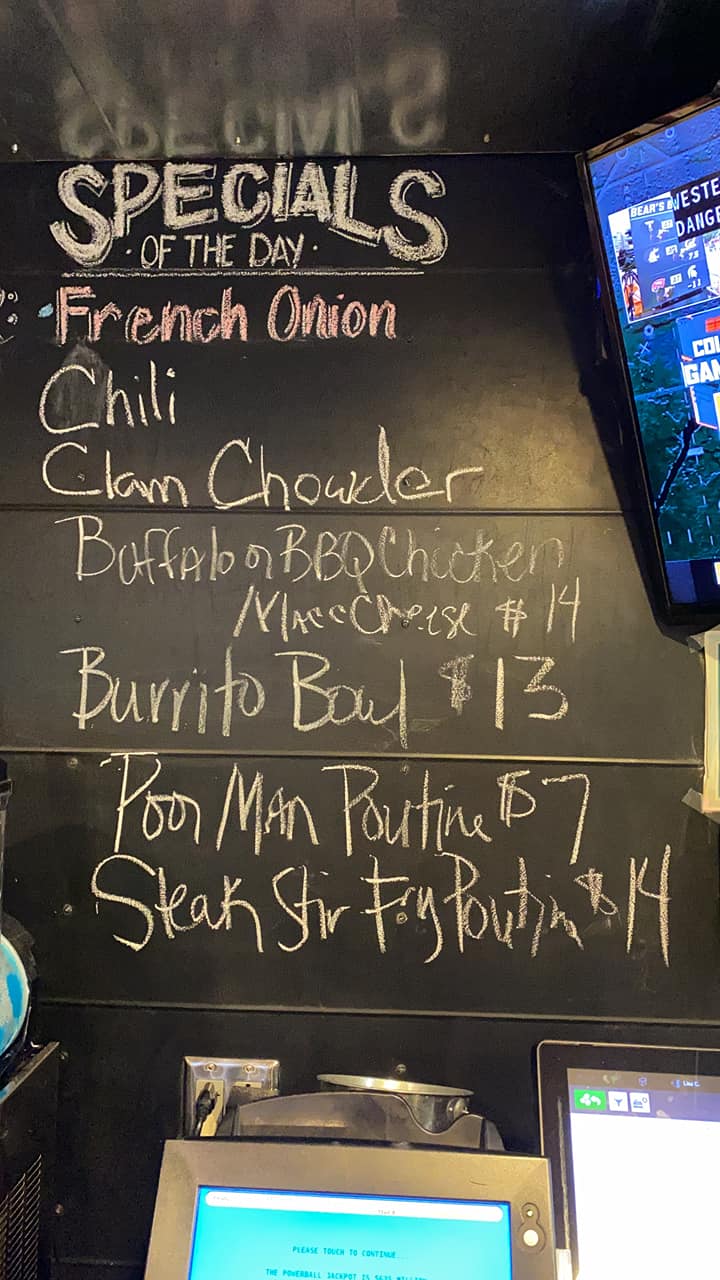 SPECIALS
· OF THE DAY ·
French Onion
Chili
Clam Chowder
Buffalo or BBQ Chicken
Mac c Cheese $14
Burrito Bowl $13
Poor Man Poutine $7
Steak Stir Fry Poutin $14
WESTE
DANGE
BEAR'S B
COL
GAM
PLEASE TOUCH TO CONTINUE...
THE POWERBALL JACKPOT IS